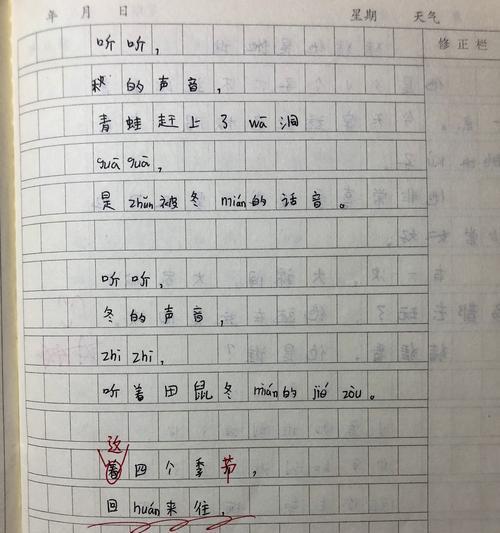 年 月 日 星期 天气
修正栏
听听，
秋的声音，
青蛙赶上了wā洞
guā guā，
是zhǔn被冬mián的话音。
听听，
冬的声音，
zhi zhi，
听着田鼠冬mián的jié zòu。
这
四个季节，
回huán来往，